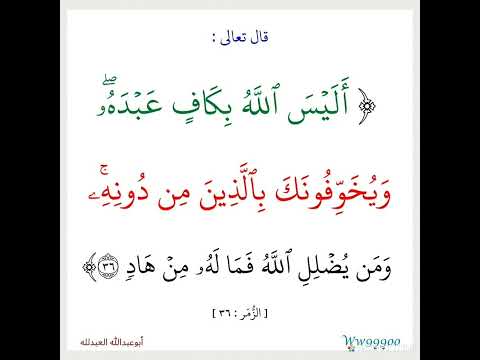 قال تعالى :
﴿ أَلَيۡسَ ٱللَّهُ بِكَافٍ عَبۡدَهُۥۖ
وَيُخَوِّفُونَكَ بِٱلَّذِينَ مِن دُونِهِۦۚ
وَمَن يُضۡلِلِ ٱللَّهُ فَمَا لَهُۥ مِنۡ هَادٖ ٣٦ ﴾
[ الزُّمَر : ٣٦ ]
أبوعبدالله العبدلله
Ww99900